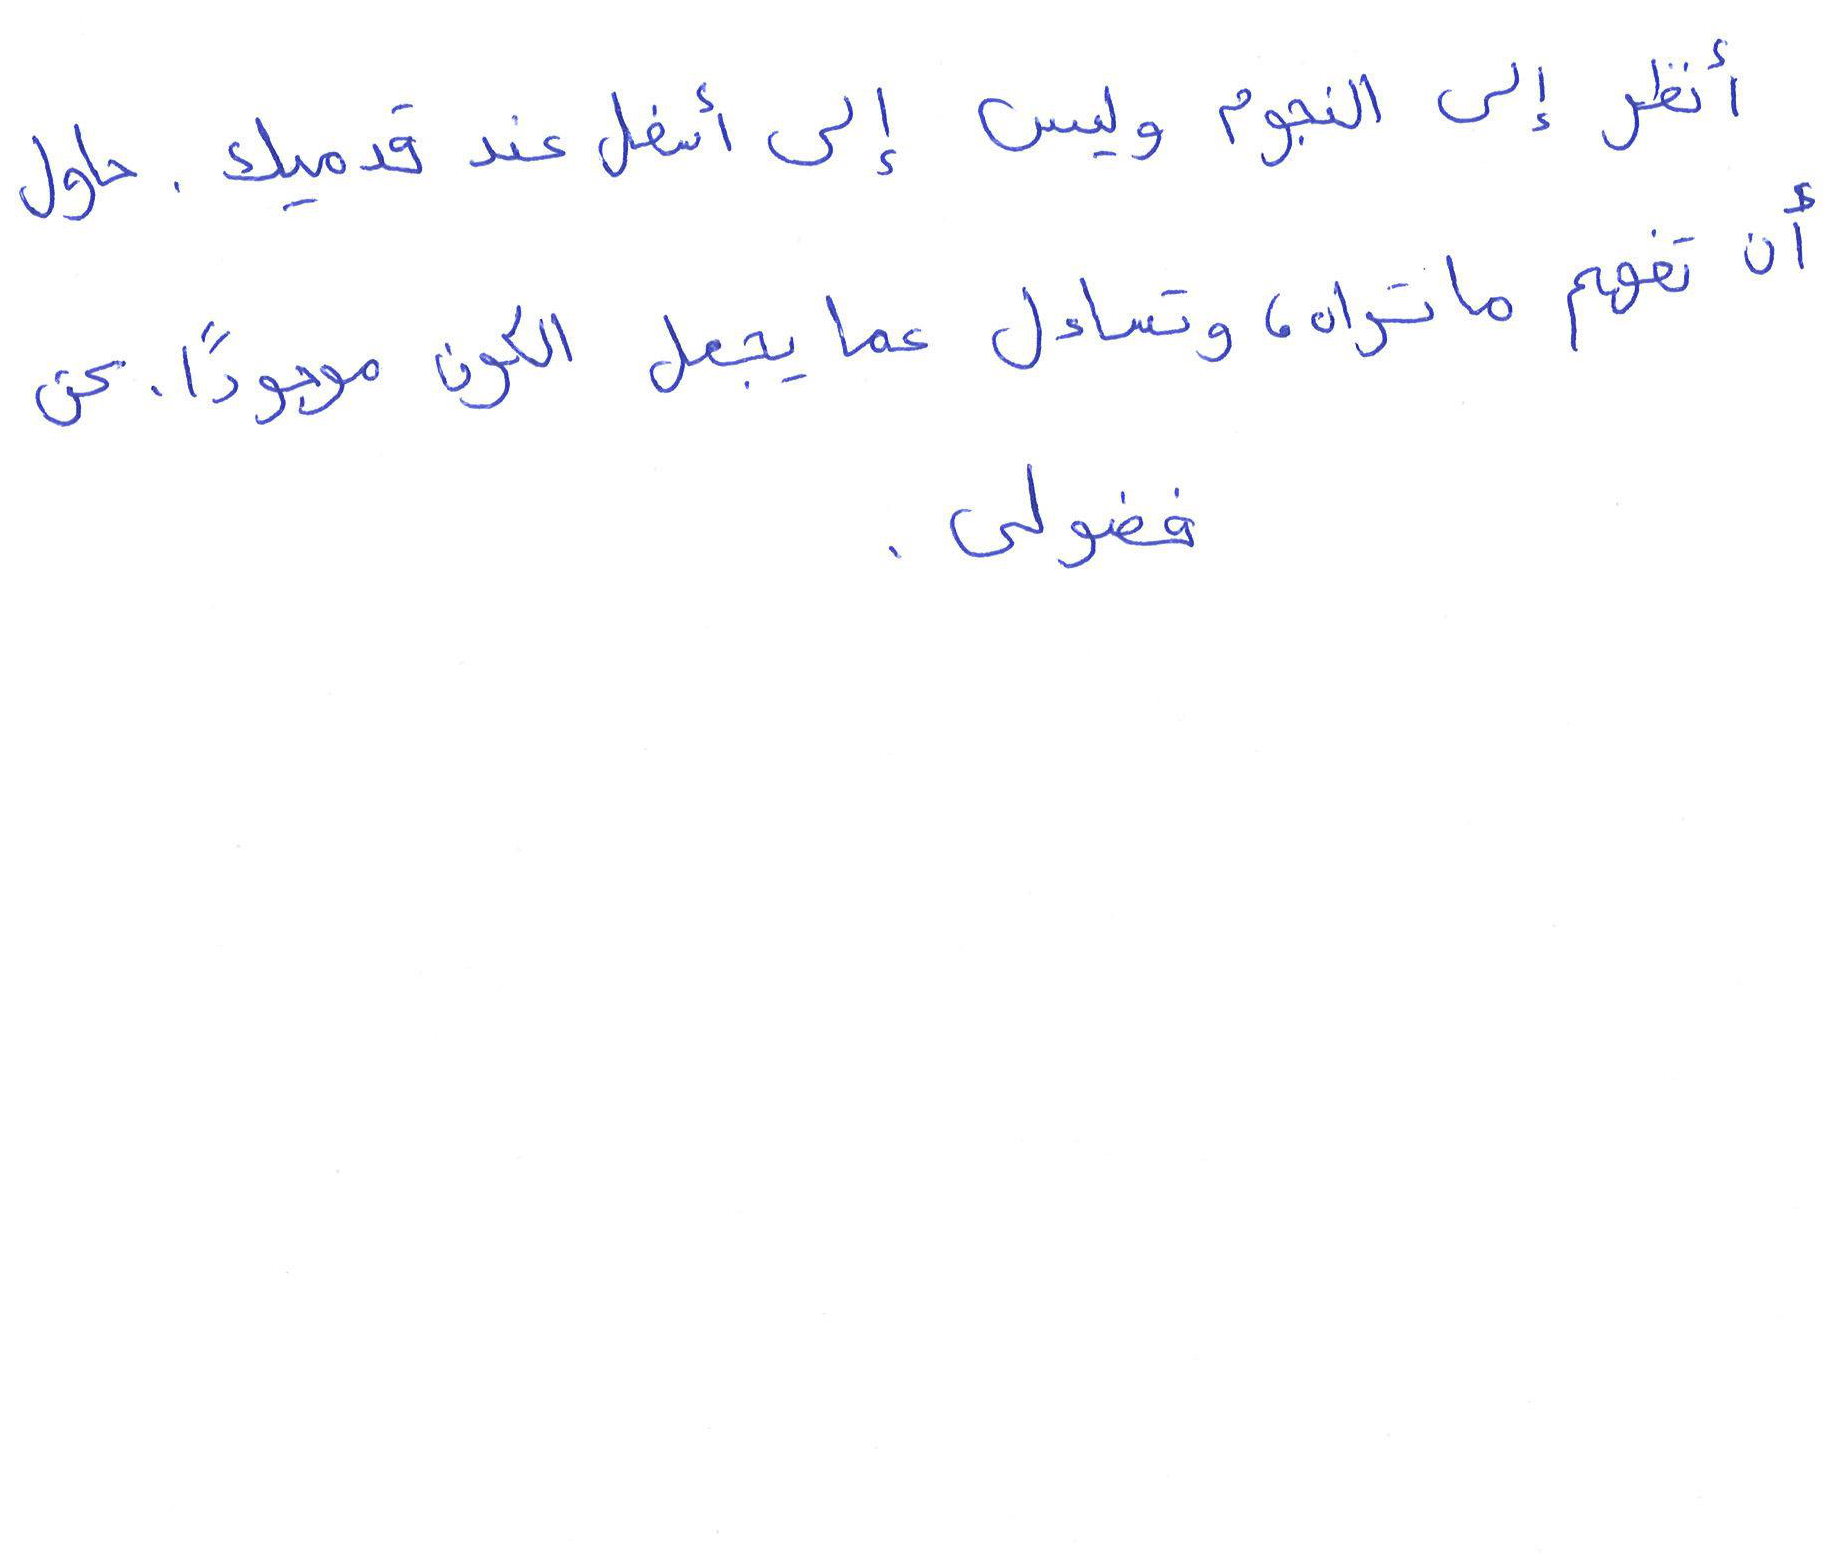 أنظر إلى النجوم وليس إلى أسفل عند قدميك. حاول
أن تفهم ما تراه، وتساءل عما يجعل الكون موجودًا. كن
فضولى.